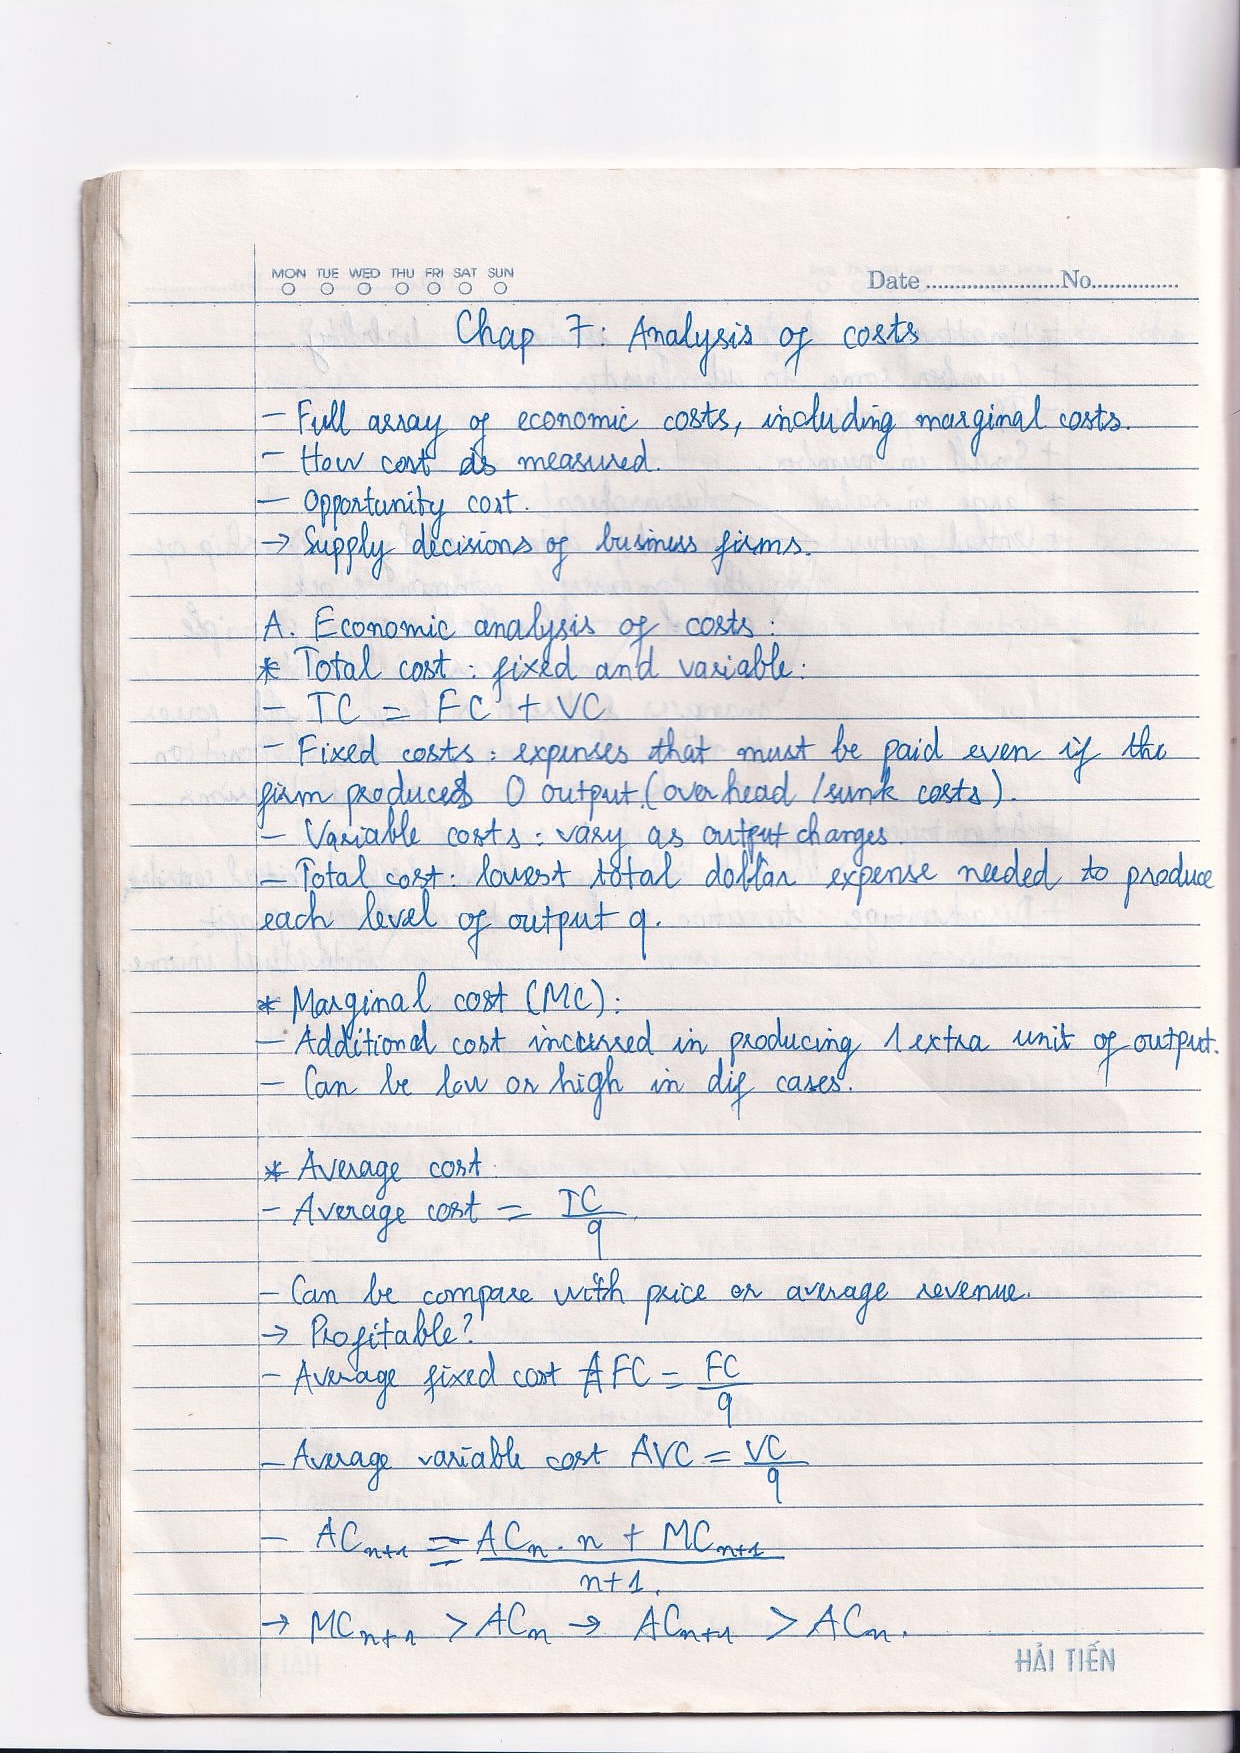 MON TUE WED THU FRI SAT SUN
Date ........................No...............
Chap 7: Analysis of costs
- Full array of economic costs, including marginal costs.
- How cost is measured.
- Opportunity cost.
→ Supply decisions of business firms.
A. Economic analysis of costs:
* Total cost: fixed and variable:
- TC = FC + VC
- Fixed costs: expenses that must be paid even if the
firm produces 0 output (overhead / sunk costs).
- Variable costs: vary as output changes.
- Total cost: lowest total dollar expense needed to produce
each level of output q.
* Marginal cost (MC):
- Additional cost incurred in producing 1 extra unit of output.
- Can be low or high in dif cases.
* Average cost:
- Average cost = TC/q
- Can be compare with price or average revenue.
→ Profitable?
- Average fixed cost AFC = FC/q
- Average variable cost AVC = VC/q
- ACn+1 = (ACn . n + MCn+1)/(n+1).
→ MCn+1 > ACn → ACn+1 > ACn.
HẢI TIẾN